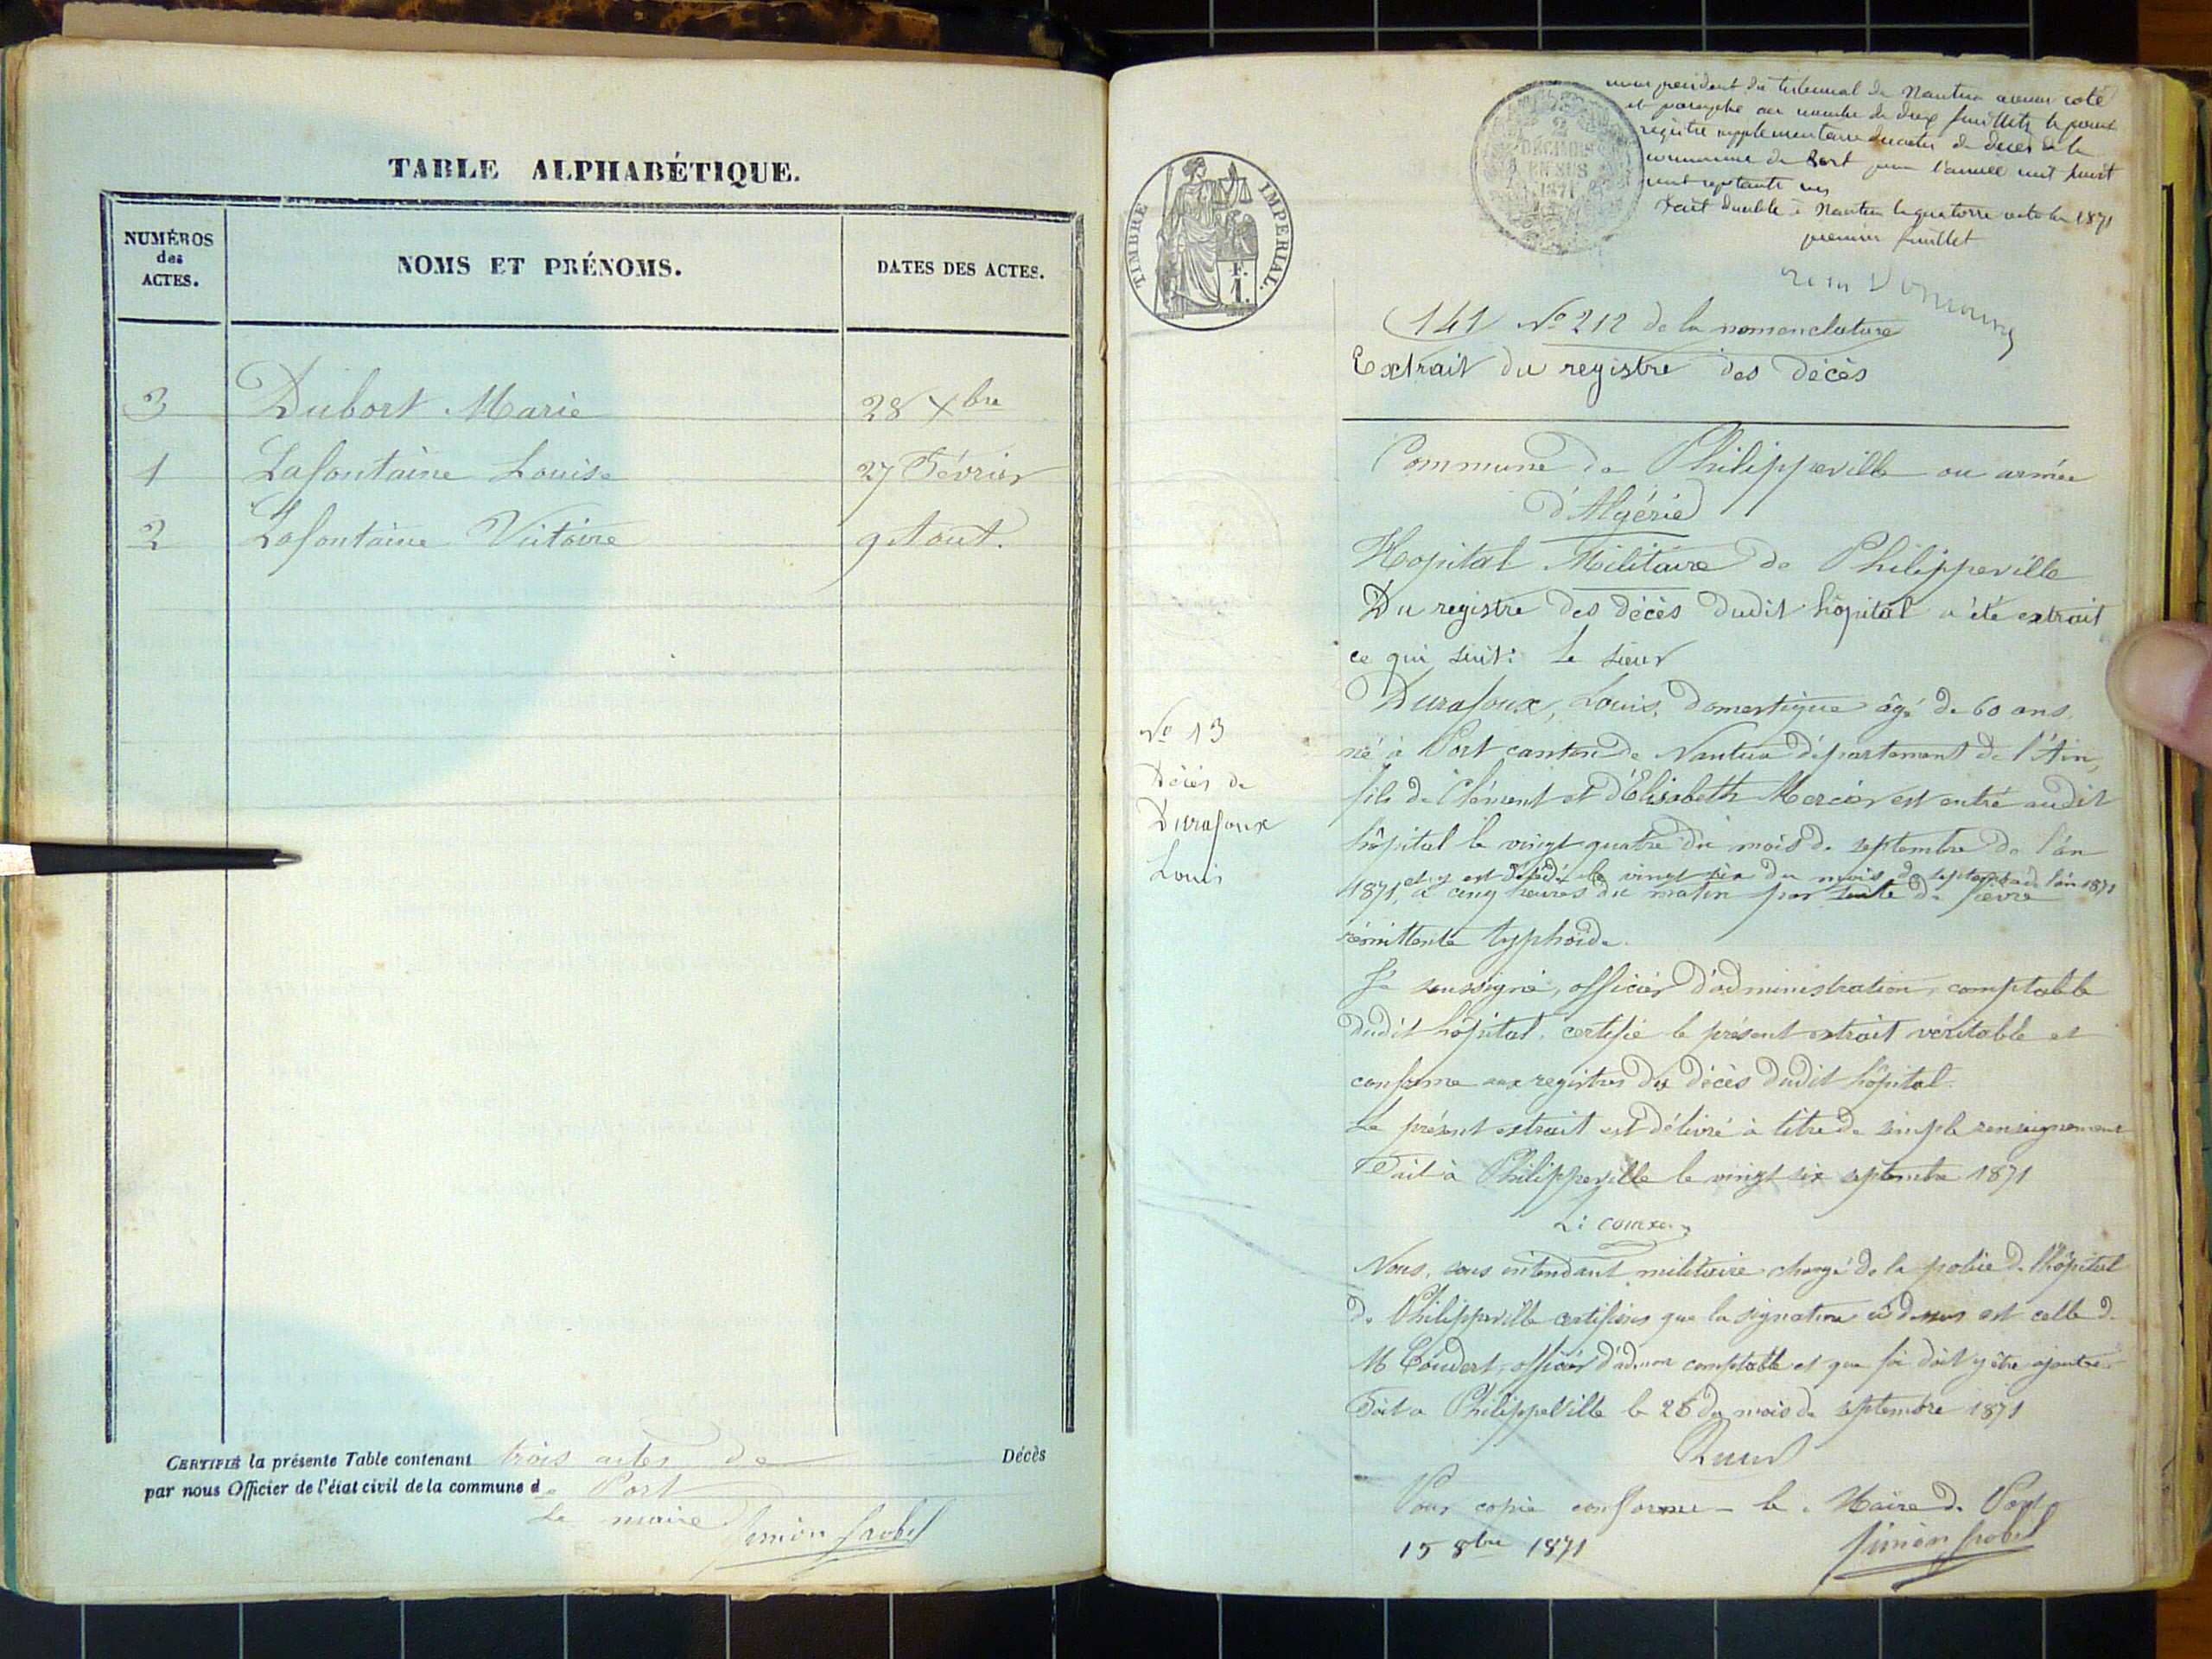 TABLE ALPHABÉTIQUE.
NUMÉROS des ACTES.
NOMS ET PRÉNOMS.
DATES DES ACTES.
3 Dubort Marie 28 Xbre
1 Lafontaine Louise 27 Février
2 Lafontaine Victoire 9 Aout.
CERTIFIÉ la présente Table contenant trois actes de Décès
par nous Officier de l'état civil de la commune de Port
Le maire
TIMBRE IMPÉRIAL.
F.
1.
2
DÉCIMES
EN SUS
1871
président du tribunal de Nantua avons coté
et paraphé au nombre de deux feuillets le présent
registre supplementaire des actes de décès de la
commune de Port pour l'année mil huit
cent soixante onze
Fait double à Nantua le quatorze octobre 1871
premier feuillet
141 No 212 de la nomenclature
Extrait du registre des décès
Commune de Philippeville ou armée
d'Algérie
Hopital Militaire de Philippeville
Du registre des décès dudit hôpital a été extrait
ce qui suit: Le sieur
No 13
Décès de
Durafoux
Louis
Durafoux, Louis, Domestique âgé de 60 ans
né à Port canton de Nantua département de l'Ain,
fils de Clément et d'Elisabeth Mercier est entré audit
hôpital le vingt quatre du mois de septembre de l'an
et y est décédé le vingt six du mois de septembre de l'an 1871
1871, à cinq heures du matin par suite de fièvre
rémittente typhoïde.
Je soussigné, officier d'administration, comptable
dudit hôpital, certifie le présent extrait véritable et
conforme aux registres des décès dudit hôpital.
Le présent extrait est délivré à titre de simple renseignement
Fait à Philippeville le vingt six septembre 1871
Nous, sous intendant militaire chargé de la police de l'hôpital
de Philippeville certifions que la signature ci dessus est celle de
M Coudert, officier d'admon comptable et que foi doit y être ajoutée
Fait a Philippeville le 26 du mois de septembre 1871
Pour copie conforme - le Maire de Port
15 8bre 1871